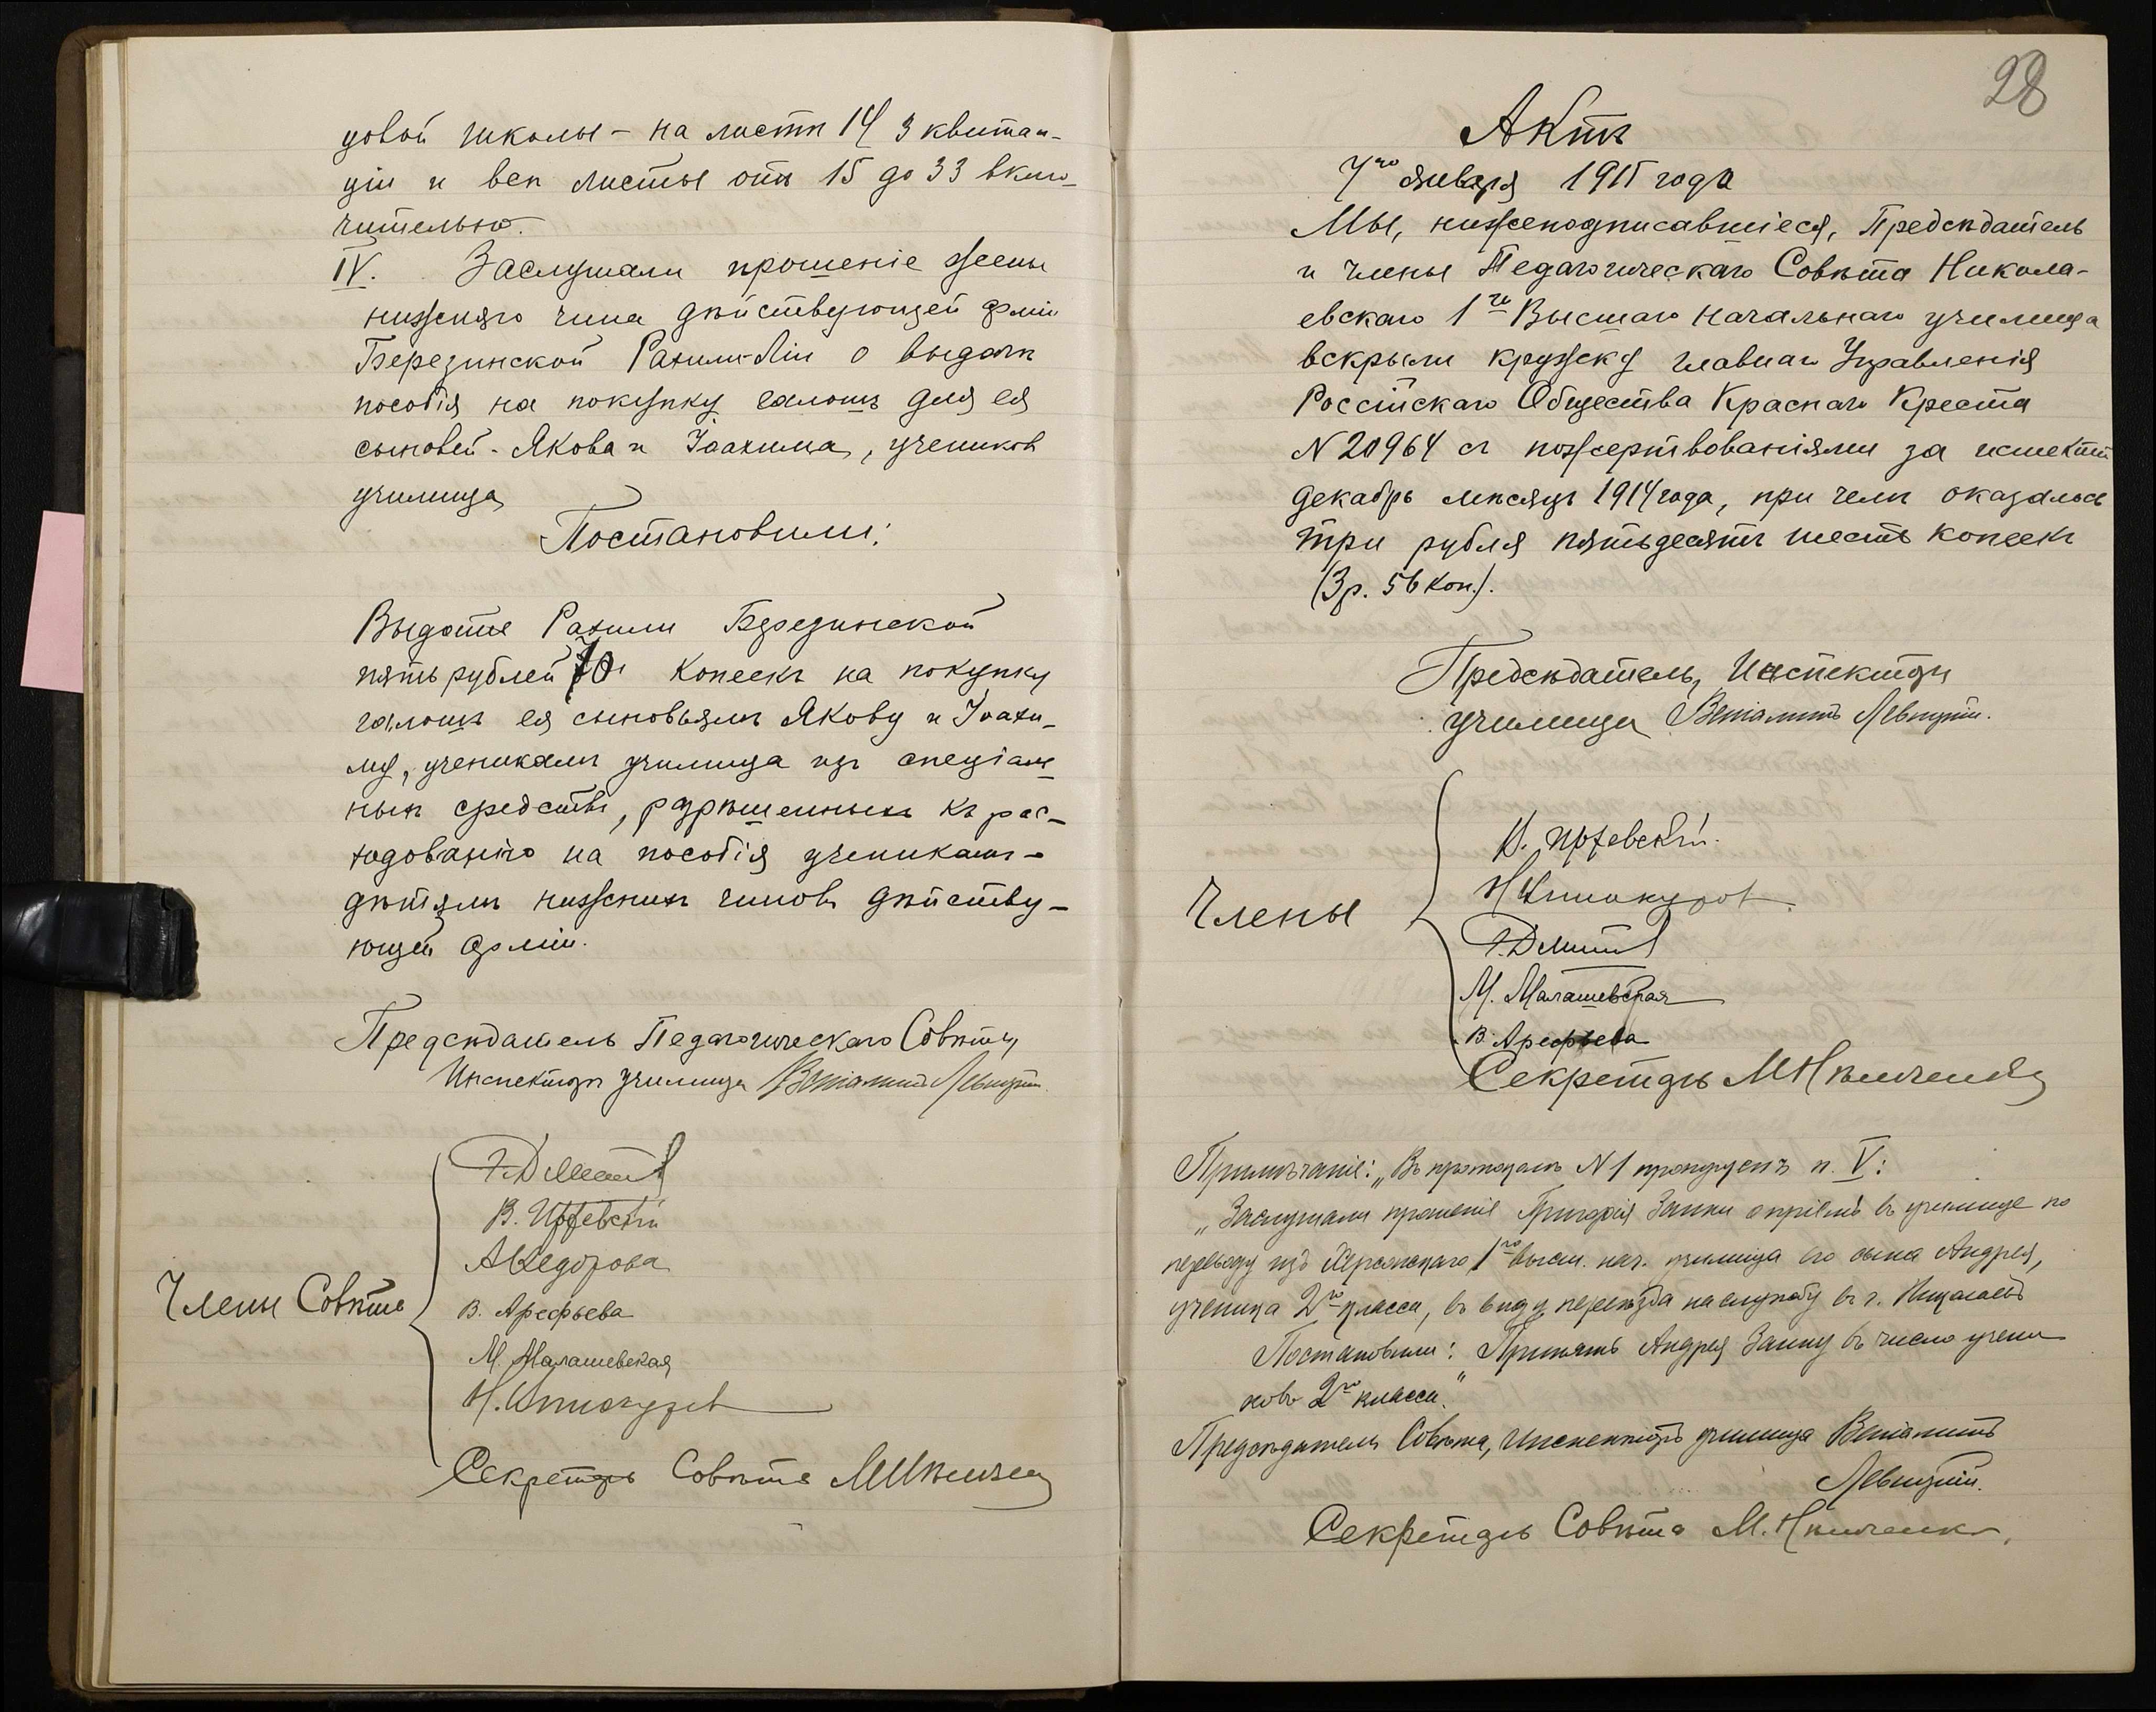 довой школы – на листѣ 14 3 квитан-
ціи и всѣ листы отъ 15 до 33 вклю-
чительно.
IV. Заслушали прошеніе жены
нижняго чина дѣйствующей арміи
Березинской Рахили-Ліи о выдачѣ
пособія на покупку галошъ для ея
сыновей – Якова и Іоахима, учениковъ
училища
Постановили:
Выдать Рахили Березинской
пять рублей 70 копеекъ на покупку
галошъ ея сыновьямъ Якову и Іоахи-
му, ученикамъ училища изъ спеціаль
ныхъ средствъ, разрѣшенныхъ къ рас-
ходованію на пособія ученикамъ –
дѣтямъ нижнихъ чиновъ дѣйству-
ющей арміи.
Предсѣдатель Педагогическаго Совѣта,
Инспекторъ училища Веніаминъ Левицкій.
В.
А. Федорова
Члены Совѣта В. Арефьева
М. Малашевская
Н. Винокуров
Секретарь Совѣта
28
Актъ
7го января 1915 года
Мы, нижеподписавшіеся, Предсѣдатель
и члены Педагогическаго Совѣта Никола-
евскаго 1го Высшаго начальнаго училища
вскрыли кружку главнаго Управленія
Россійскаго Общества Краснаго Креста
N 20964 съ пожертвованіями за истекшій
декабрь мѣсяцъ 1914 года, при чемъ оказалось
три рубля пятьдесятъ шесть копеекъ
(3 р. 56 коп.).
Предсѣдатель, Инспекторъ
училища Веніаминъ Левицкій.
В.
Н Винокуров.
Члены
М. Малашевская
В. Арефьева
Секретарь
Примѣчаніе: „Въ протоколѣ N 1 пропущенъ п. V:
„Заслушали прошеніе Григорія Заики о пріемѣ въ училище по
переводу изъ Херсонскаго 1го высш. нач. училища его сына Андрея,
ученика 2го класса, въ виду переѣзда на службу въ г. Николаевъ
Постановили: Принять Андрея Заику въ число учени
ковъ 2го класса."
Предсѣдатель Совѣта, Инспекторъ училища Веніаминъ
Левицкій.
Секретарь Совѣта М.